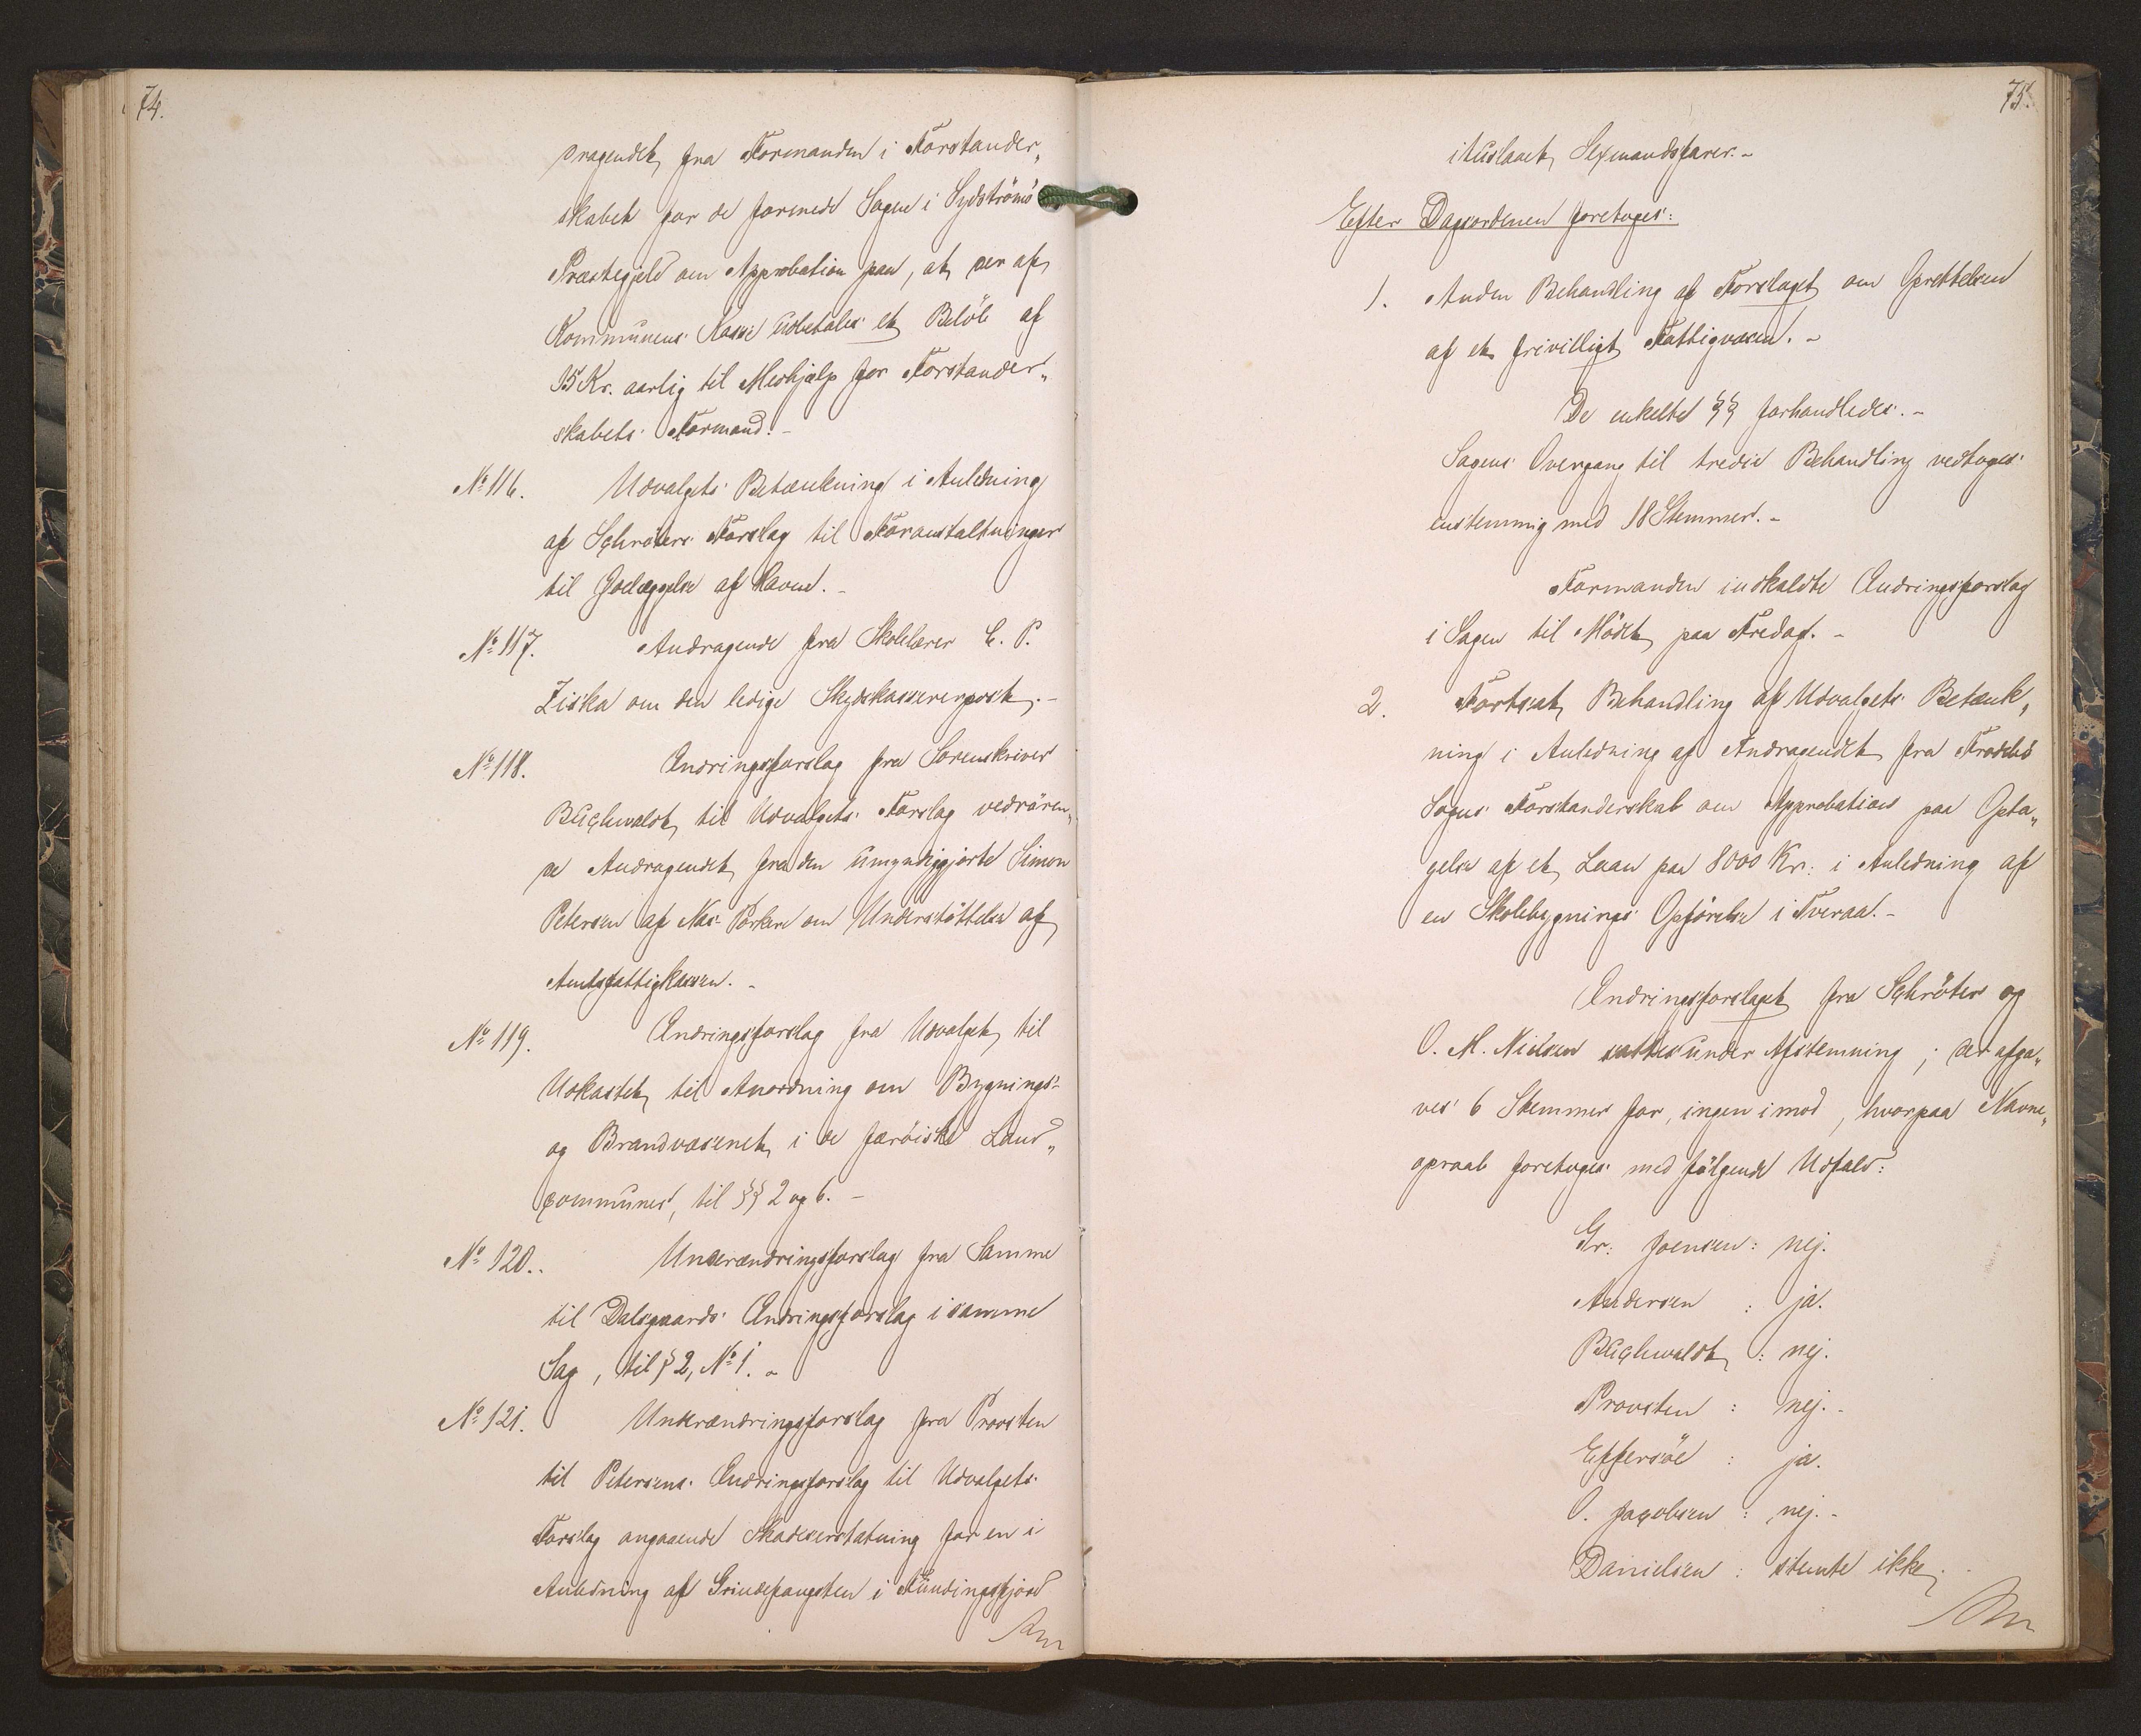 74.
dragendet fra Formanden i Forstander„
skabet for de forenede Sogne i Sydströmö
Præstegjeld om Approbation paa, at der af
Kommunens Kasse udbetales et Belöb af
35 Kr. aarlig til Medhjælp for Forstander„
skabets Formand. –
No 116. Udvalgets Betænkning i Anledning
af Schröters Forslag til Foranstaltninger
til Ödelæggelse af Ravne. –
No 117. Andragende fra Skolelærer C. P.
Ziska om den ledige Skydskassererpost. –
No 118. Ændringsforslag fra Sorenskriver
Buchwaldt til Udvalgets Forslag vedrören„
de Andragendet fra den umyndiggjorte Simon
Petersen af Næs Porkere om Understöttelse af
Amtsfattigkassen. –
No 119. Ændringsforslag fra Udvalget til
Udkastet til Anordning om Bygnings-
og Brandvæsenet i de færöiske Land„
communer, til §§ 2 og 6. –
No 120. Underændringsforslag fra Samme
til Dalsgaards Ændringsforslag i samme
Sag, til § 2, No 1. –
No 121. Underændringsforslag fra Provsten
til Petersens Ændringsforslag til Udvalgets
Forslag angaaende Skadeserstatning for en i
Anledning af Grindefangsten i Funding​sfjord
75.
ituslaaet Sexmandsfarer. –
Efter Dagsordenen foretoges:
1. Anden Behandling af Forslaget om Oprettelsen
af et frivilligt Fattigvæsen. –
De enkelte §§ forhandledes. –
Sagens Overgang til tredie Behandling vedtoges
enstemmig med 18 Stemmer. –
Formanden indkaldte Ændringsforslag
i Sagen til Mödet paa Fredag. –
2. Fortsat Behandling af Udvalgets Betænk„
ning i Anledning af Andragendet fra Frodebö
Sogns Forstanderskab om Approbation paa Opta„
gelse af et Laan paa 8000 Kr. i Anledning af
en Skolebygnings Opförelse i Tveraa. –
Ændringsforslaget fra Schröter og
O. M. Nielsen sattes under Afstemning; der afga„
ves 6 Stemmer for, ingen imod, hvorpaa Navne„
opraab foretoges med fölgende Udfald:
Gr. Joensen: nej.
Andersen : ja.
Buchwaldt : nej.
Provsten : nej. –
Effersöe : ja.
O. Jacobsen : nej. –
Danielsen : stemte ikke. –